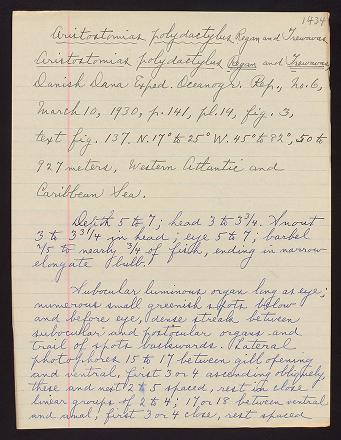 1434
Aristostomias polydactylus Regan and Trewavas
Aristostomias polydactylus Regan and Trewavas,
Danish Dana Exped. Oceanogr. Rep., No. 6,
March 10, 1930, p. 141, pl. 14, fig. 3,
text fig. 137. N. 17° to 25° W. 45° to 82°, 50 to
927 meters, Western Atlantic and
Caribbean Sea.
Depth 5 to 7; head 3 to 3 3/4. Snout
3 to 3 3/4 in head; eye 5 to 7; barbel
to nearly 3/4 of fish, ending in narrow
elongate bulb.
Subocular luminous organ long as eye;
numerous small greenish spots below
and before eye, dense streak between
subocular and postocular organs and
trail of spots backwards. Lateral
photophores 15 to 17 between gill opening
and ventral, first 3 or 4 ascending obliquely,
these and next 2 to 5 spaced, rest in close
linear groups of 2 to 4; 17 or 18 between ventral
and anal, first 3 or 4 close, rest spaced